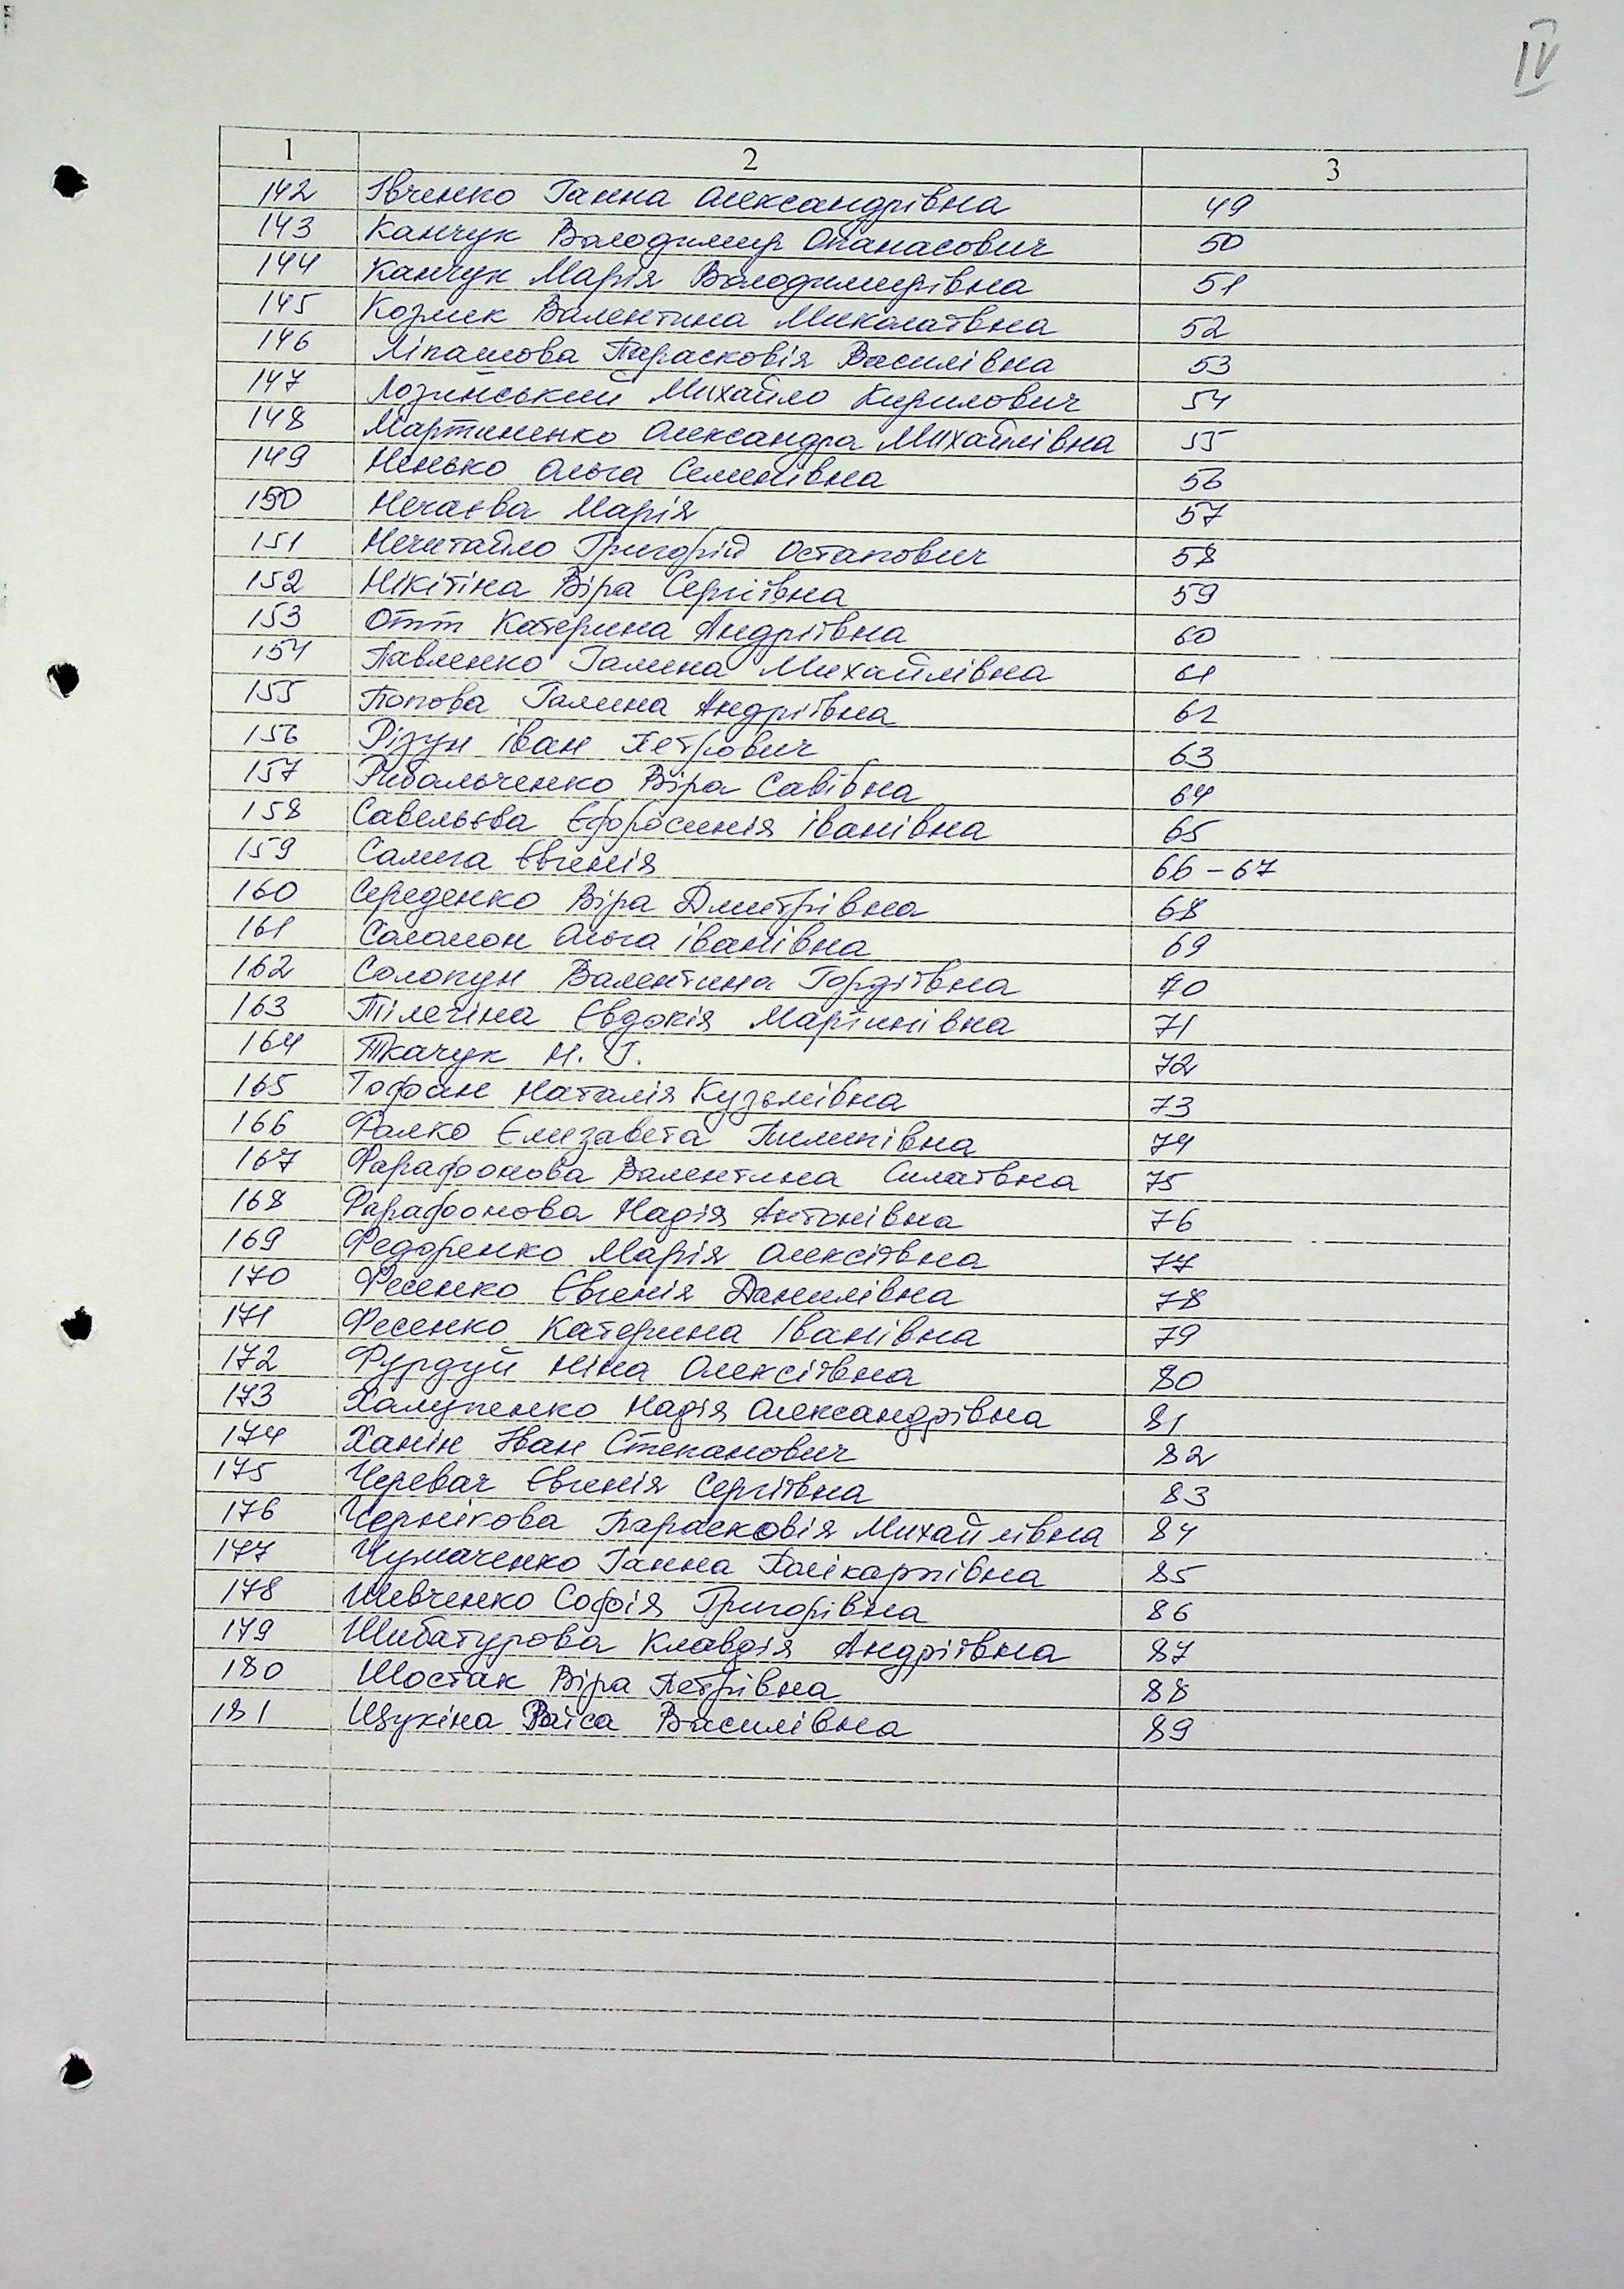 IV
1 2 3
142 Івченко Ганна Олександрівна 49
143 Канчук Володимир Опанасович 50
144 Канчук Марія Володимирівна 51
145 Козлик Валентина Миколаївна 52
146 Ліпашова Парасковія Василівна 53
147 Лозинський Михайло Кирилович 54
148 Мартиненко Олександра Михайлівна 55
149 Ненько Ольга Семенівна 56
150 Нечаєва Марія 57
151 Нечитайло Григорій Остапович 58
152 Нікітіна Віра Сергіївна 59
153 Отт Катерина Андріївна 60
154 Павленко Галина Михайлівна 61
155 Попова Галина Андріївна 62
156 Різун Іван Петрович 63
157 Рибальченко Віра Савівна 64
158 Савельєва Єфросинія Іванівна 65
159 Салига Євгенія 66-67
160 Середенко Віра Дмитрівна 68
161 Соломон Ольга Іванівна 69
162 Солопун Валентина Гордіївна 70
163 Тілечіна Євдокія Мартинівна 71
164 Ткачук Н. Г. 72
165 Тофан Наталія Кузьмівна 73
166 Фалко Єлизавета Пилипівна 74
167 Фарафонова Валентина Силаївна 75
168 Фарафонова Надія Антонівна 76
169 Федоренко Марія Олексіївна 77
170 Фесенко Євгенія Данилівна 78
171 Фесенко Катерина Іванівна 79
172 Фурдуй Ніна Олексіївна 80
173 Халупенко Надія Олександрівна 81
174 Ханін Іван Степанович 82
175 Черевач Євгенія Сергіївна 83
176 Чернікова Парасковія Михайлівна 84
177 Чумаченко Ганна Полікарпівна 85
178 Шевченко Софія Григорівна 86
179 Шибатурова Клавдія Андріївна 87
180 Шостак Віра Петрівна 88
181 Щукіна Раїса Василівна 89